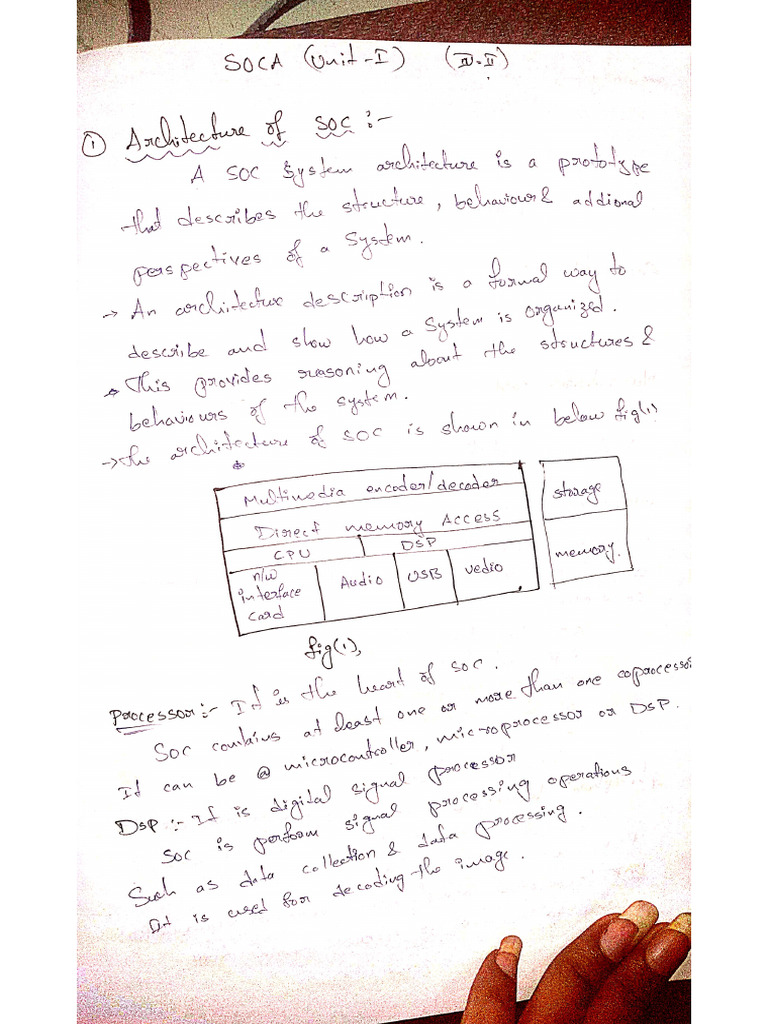 SOCA (Unit-I) (IV-II)
① Architecture of SOC :-
A SOC System architecture is a prototype
that describes the structure, behaviour & addional
perspectives of a System.
→ An architecture description is a formal way to
describe and show how a System is organized.
→ This provides reasoning about the structures &
behaviours of the system.
→ The architecture of SOC is shown in below fig(1)
Multimedia encoder/decoder
Direct memory Access
CPU DSP
n/w interface card Audio USB vedio
storage
memory.
fig(1),
Processor :- It is the heart of SOC.
SOC contains at least one or more than one coprocessor
It can be @ microcontroller, microprocessor or DSP.
DSP :- It is digital signal processor
SOC is perform signal processing operations
Such as data collection & data processing.
It is used for decoding the image.